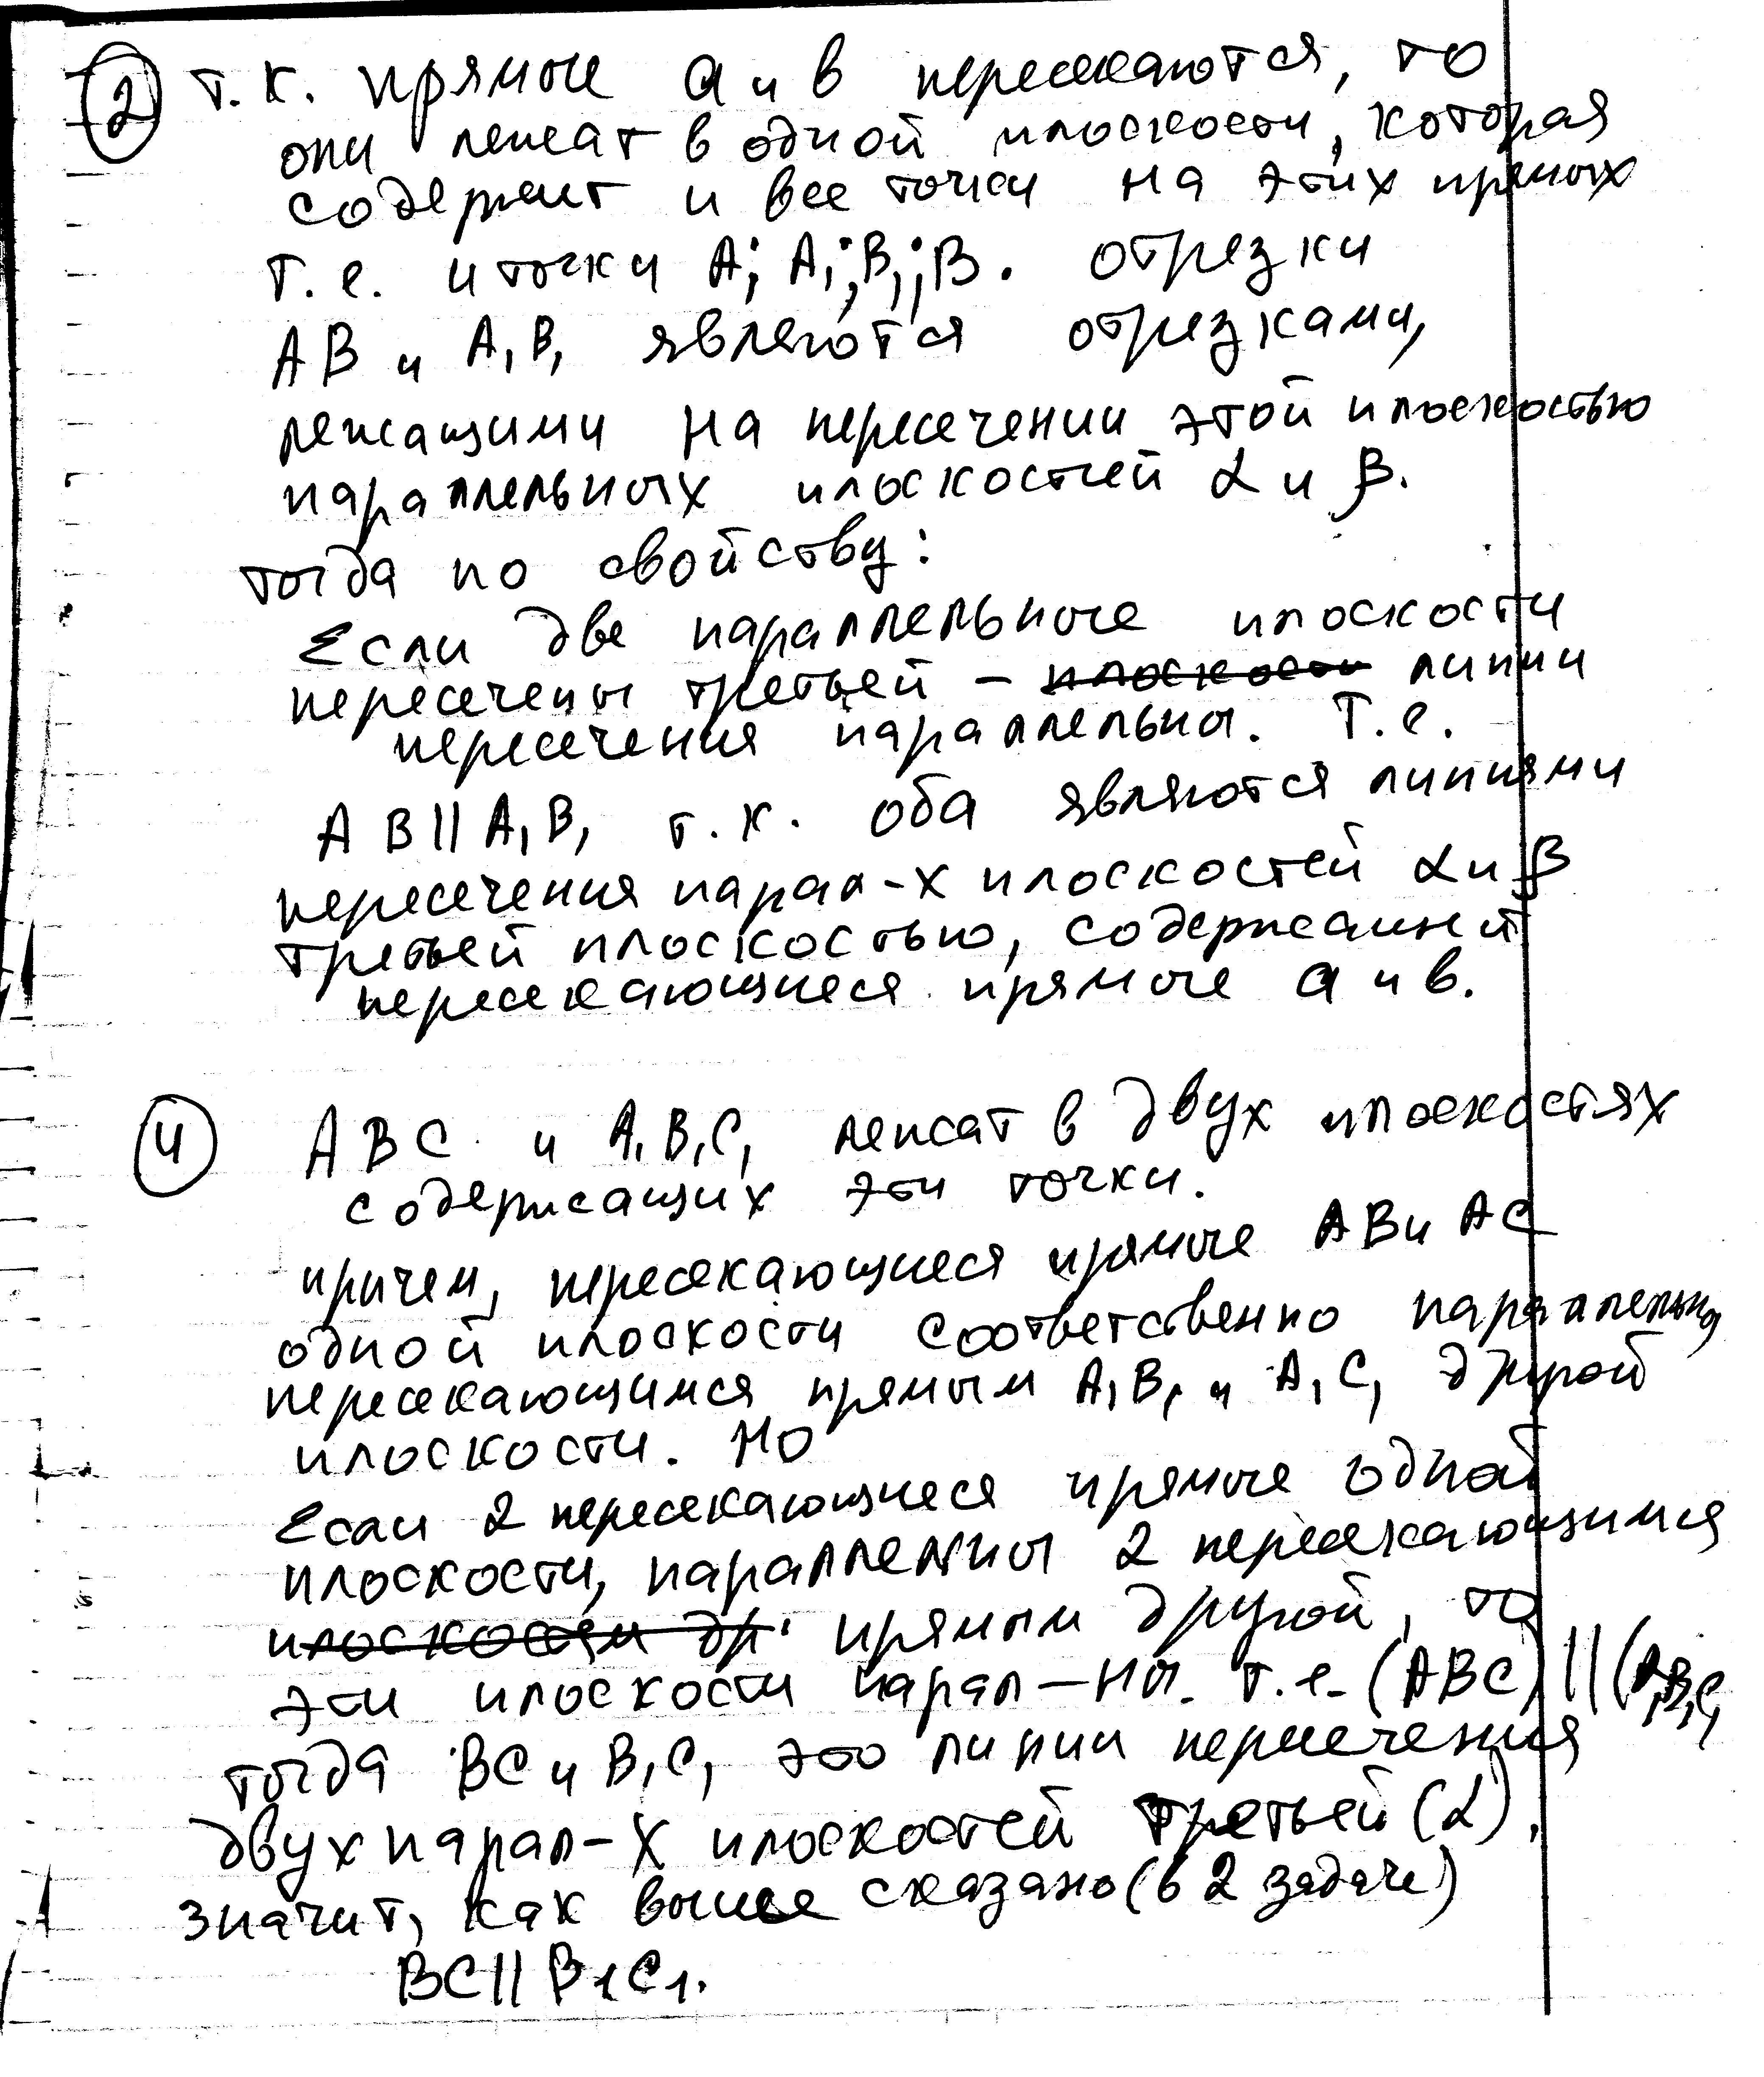 2 т.к. прямые a и b пересекаются, то
они лежат в одной плоскости, которая
содержит и все точки на этих прямых
т.е. и точки A; A₁; B₁; B. отрезки
AB и A₁B₁ являются отрезками,
лежащими на пересечении этой плоскостью
параллельных плоскостей α и β.
тогда по свойству:
Если две параллельные плоскости
пересечены третьей – плоскости линии
пересечения параллельны. Т.е.
AB || A₁B₁ т.к. оба являются линиями
пересечения парал-х плоскостей α и β
третьей плоскостью, содержащей
пересекающиеся прямые a и b.
4 ABC и A₁B₁C₁ лежат в двух плоскостях
содержащих эти точки.
причем, пересекающиеся прямые AB и AC
одной плоскости соответственно параллельны
пересекающимся прямым A₁B₁ и A₁C₁ другой
плоскости. Но
Если 2 пересекающиеся прямые одной
плоскости, параллельны 2 пересекающимся
плоскостям др. прямым другой, то
эти плоскости парал-ны. т.е. (ABC) || (A₁B₁C₁
тогда BC и B₁C₁ это линии пересечения
двух парал-х плоскостей третьей (α),
значит, как выше сказано (в 2 задаче)
BC || B₁C₁.